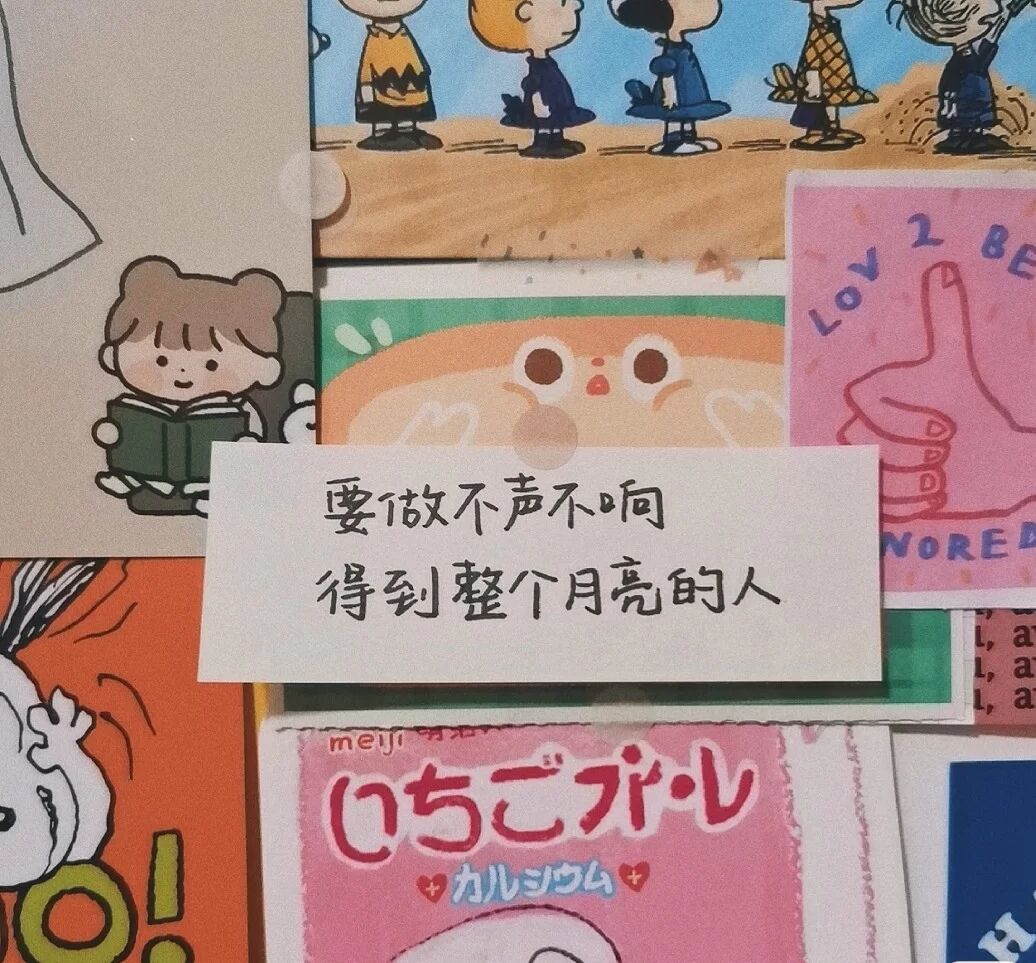 LOV 2 BE
要做不声不响
得到整个月亮的人
NORED
meiji
いちごオ・レ
カルシウム
O!
H